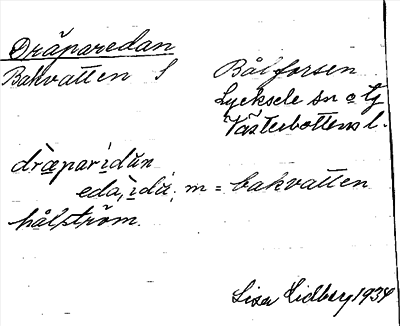 Dräparedan
Bakvatten S Bålforsen
Lycksele sn o Lg
Västerbottens l.
dræparidän
eda, idä; m = bakvatten
hålström.
Lisa Lidberg 1934